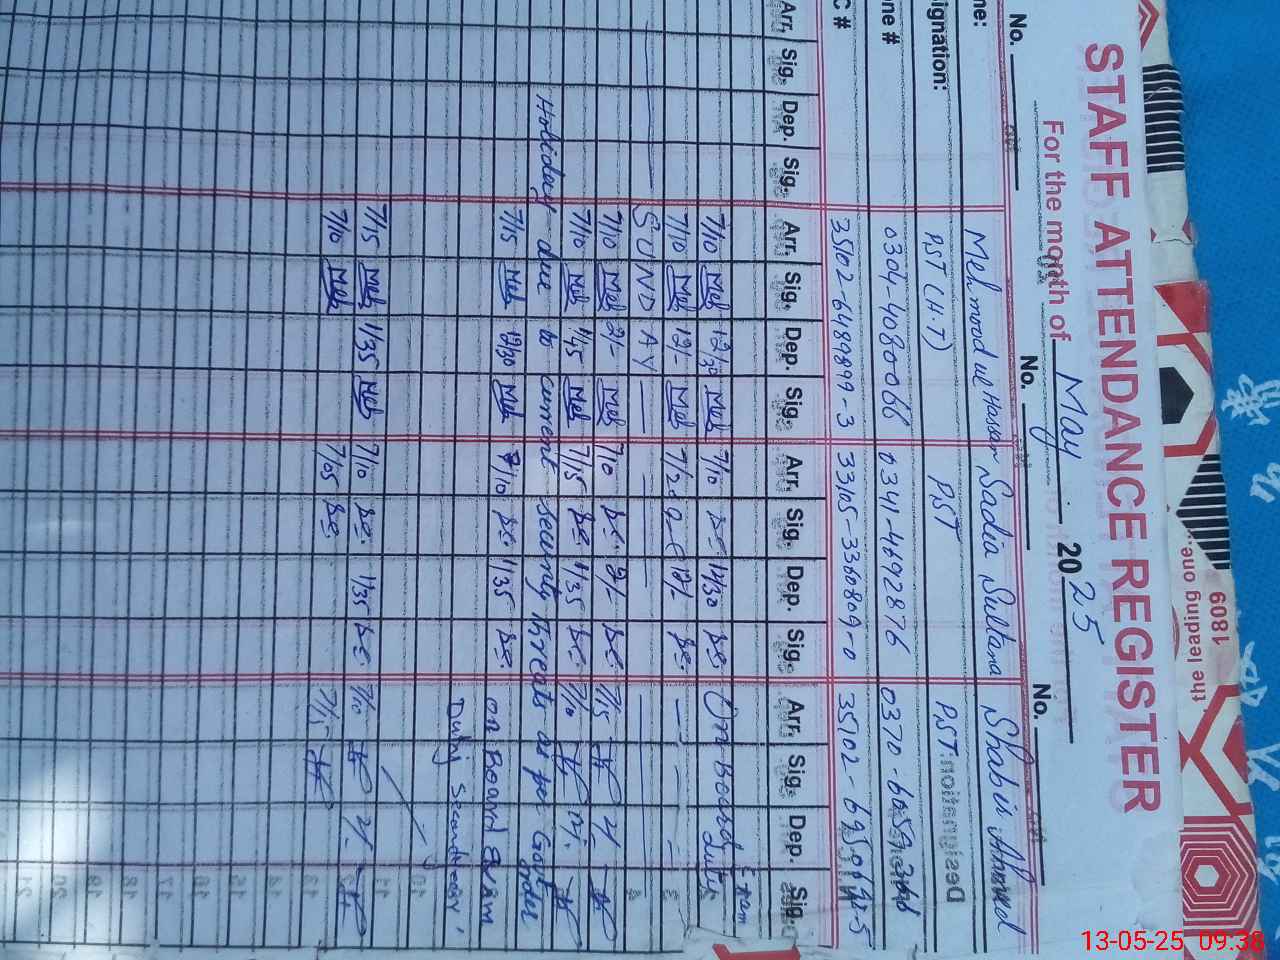 STAFF ATTENDANCE REGISTER
For the month of May 2025
No. No. No.
me: Mehmood ul Hassan Sadia Sultana Shabir Ahmed
signation: PST (H.T) PST PST
one # 0304-4080066 0341-4692876 0370-
C # 35102-6489899-3 33105-3360809-0 35102-
Arr. Sig. Dep. Sig. Arr. Sig. Dep. Sig. Arr. Sig. Dep. Sig. Arr. Sig. Dep. Sig.
Exam
7/10 Meh 12/30 Meh 7/10 se 12/30 se On Board duty
7/10 Meh 12/- Meh 7/20 12/- se.
SUNDAY
7/10 Meh 2/- Meh 7/10 se. 2/- se. 7/15 2/-
7/10 Meh 1/45 Meh 7/15 se. 1/35 se. 7/10 12/-
Holiday due to current security threats as per Govt order
7/15 Meh 12/30 Meh 7/10 se. 1/35 se. on Board Exam
Duty Secondary.
7/15 Meh 1/35 Meh 7/10 se. 1/35 se. 7/10 2/-
7/10 Meh 7/05 se. 7/15
1809
the leading one..
13-05-25 09:38